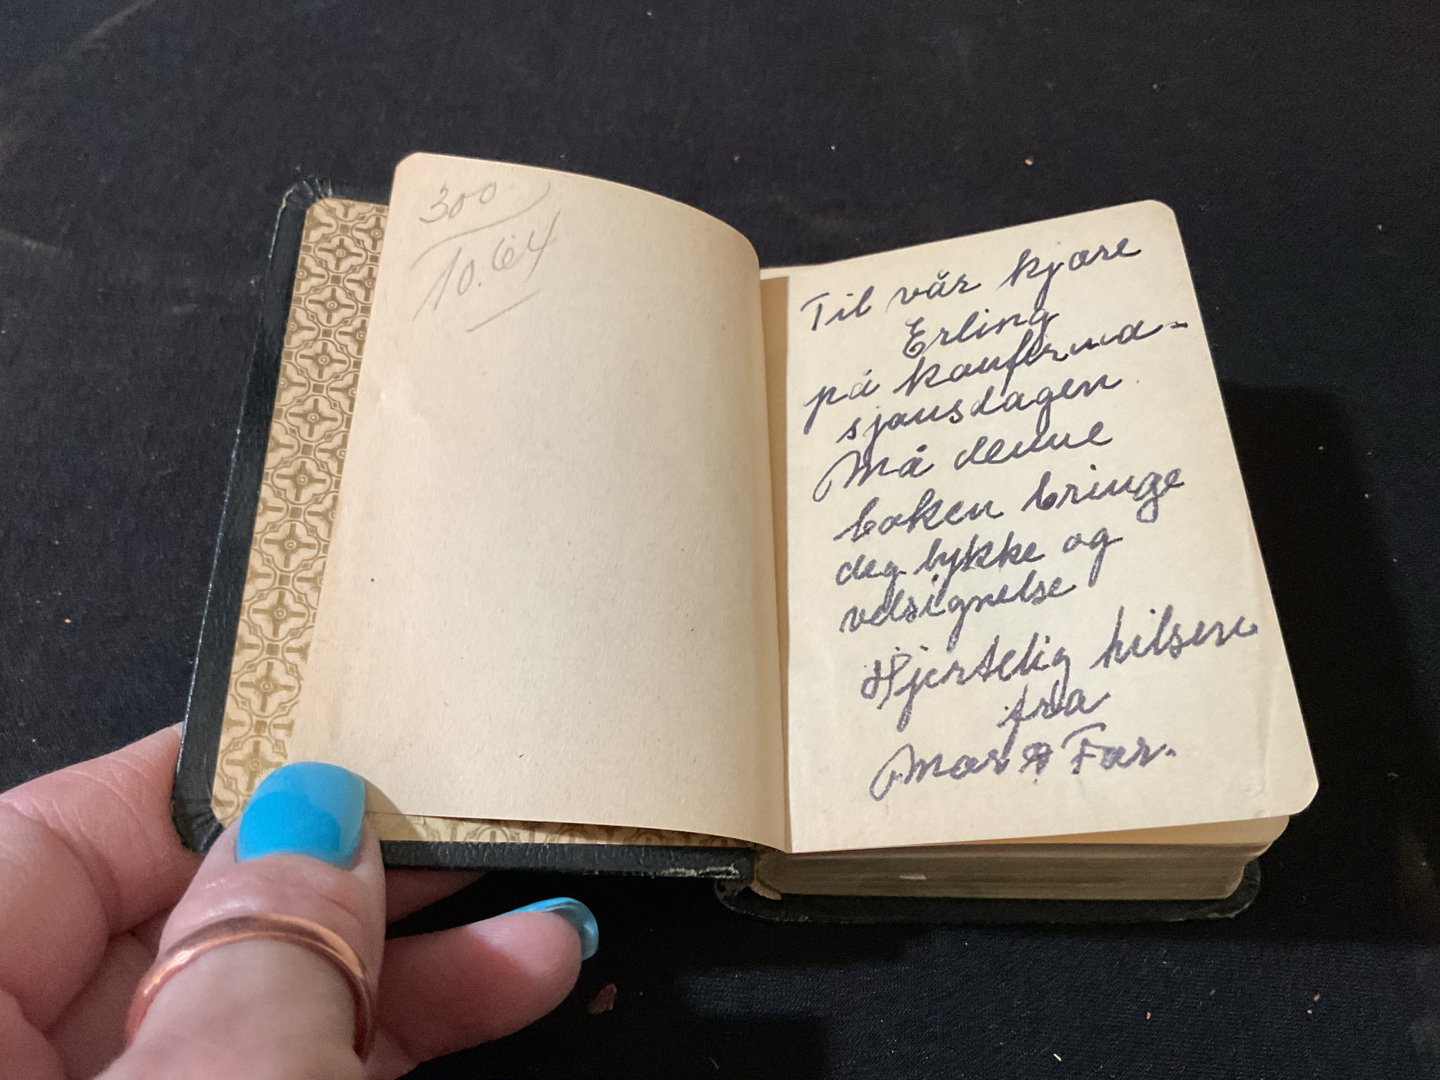 300
10.64
Til vår kjære
Erling
på konfirma-
sjonsdagen
Må denne
boken bringe
deg lykke og
velsignelse
Hjertelig hilsen
fra
Mor & Far.